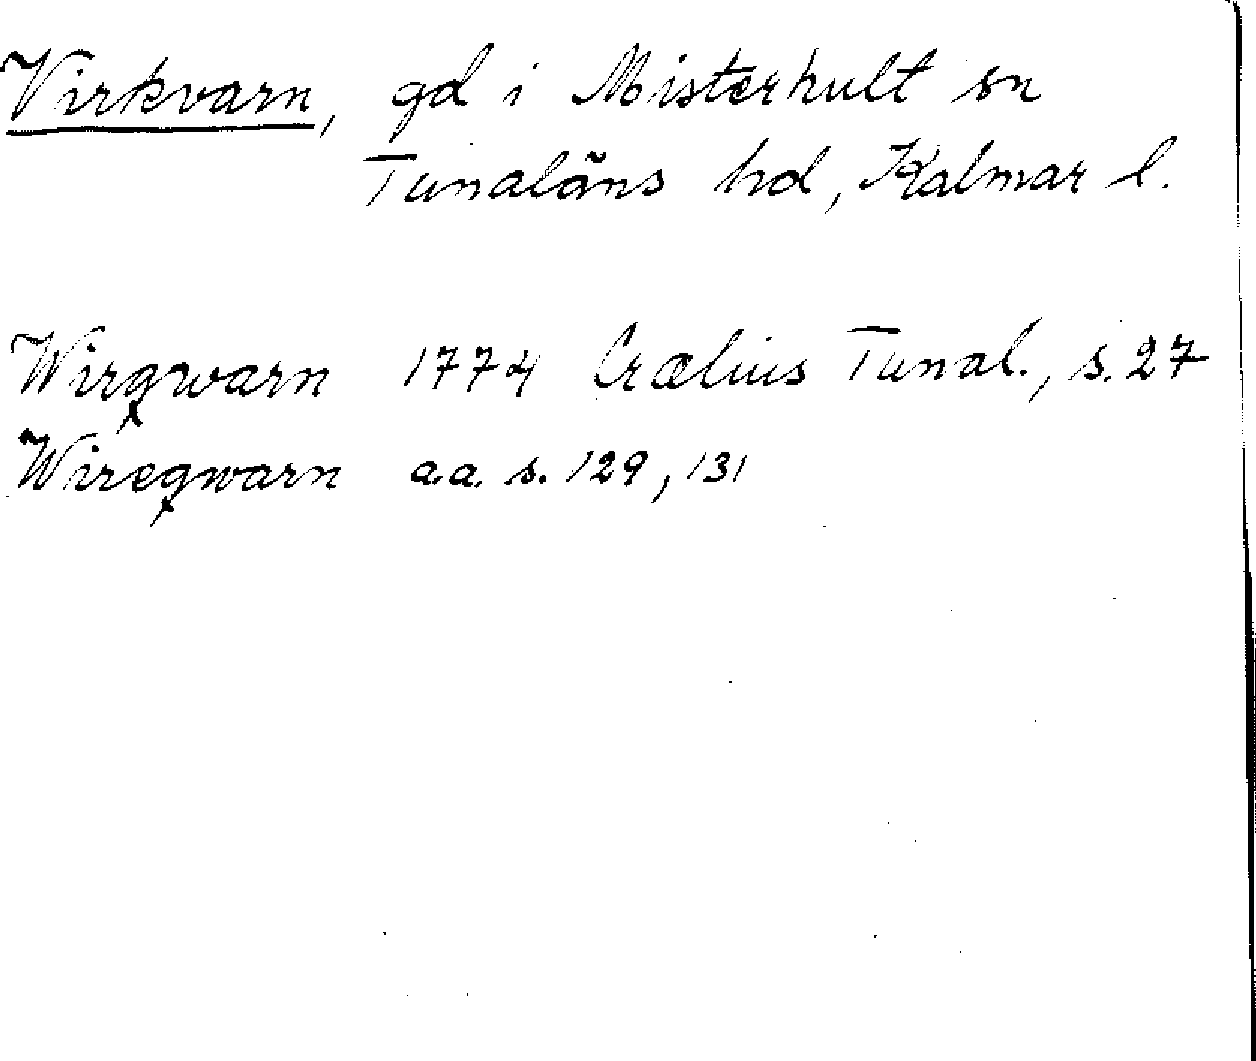 Virkvarn, gd i Misterhult sn
Tunaläns hd, Kalmar l.
Wirqwarn 1774 Crælius Tunal., s. 27
Wireqwarn a.a. s. 129, 131